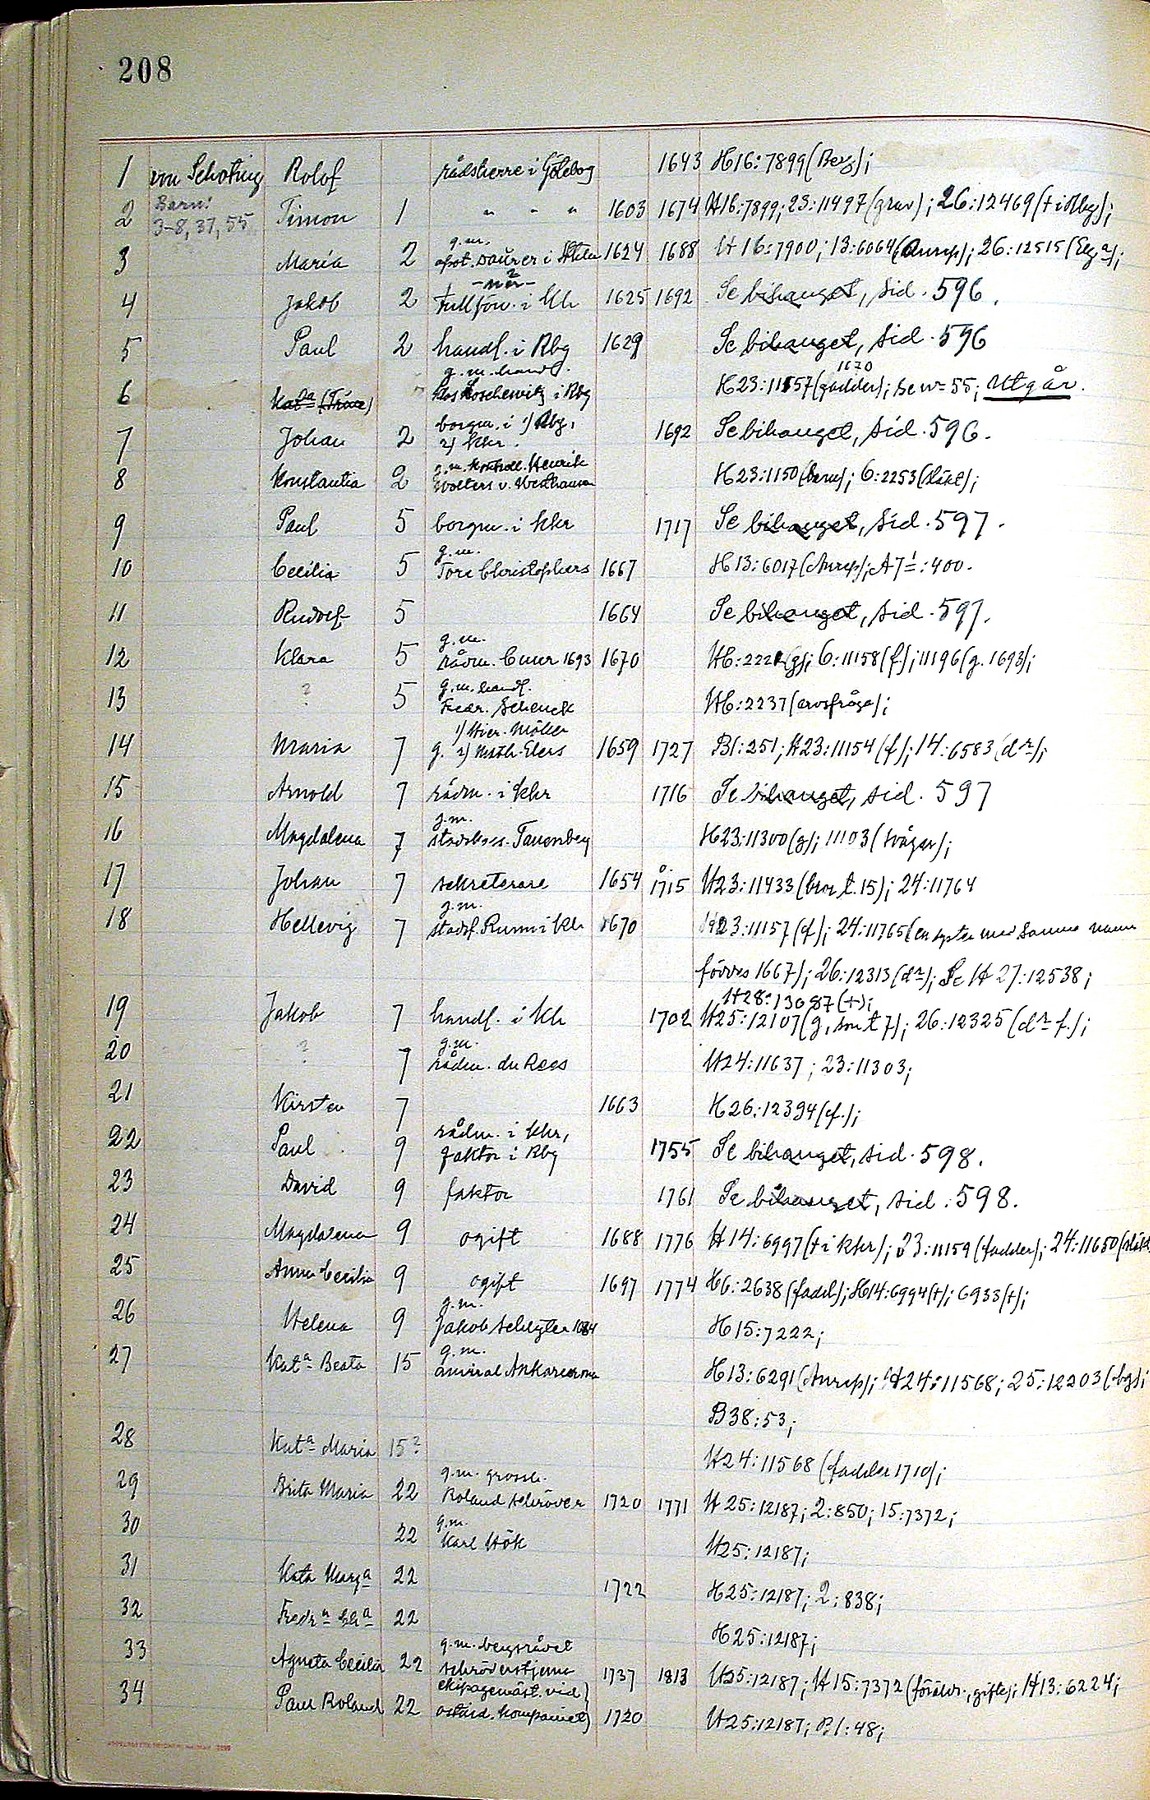 208
1 von Schoting Rolof rådsherre i Göteborg 1643 H16:7899(Berg);
2 Barn: 3-8, 37, 55 Timon 1 " " " 1603 1674 H16:7899; 23:11497(grav); 26:12469(+ i Nbg);
g.m.
3 Maria 2 i Sthlm 1624 1688 H 16:7900; 13:6064(Anrep); 26:12515
4 Jakob 2 i Khr 1625 1692 Se bihanget, sid. 596.
5 Paul 2 handl. i Rbg 1629 Se bihanget, sid. 596
g.m. handl. 1670
6 i Rbg H23:11157(fadder); se nr 55; Utgår.
borgm. i 1) Rbg,
7 Johan 2 2) Khr. 1692 Se bihanget, sid. 596.
g.m. Henrik
8 Konstantia 2 Wolters v. H23:1150(barn); 6:2253(släkt);
9 Paul 5 borgm. i Khr 1717 Se bihanget, sid. 597.
g.m.
10 Cecilia 5 Tore Christophers 1667 H13:6017(Anrep); :400.
11 Rudolf 5 1664 Se bihanget, sid. 597.
g.m.
12 Klara 5 rådm. 1693 1670 H6:222 (g); 6:11158(f); 11196(g. 1693);
g.m. handl.
13 ? 5 Fredr. Schenck H6:2237(arvsfråga);
1) Hier. Möller
14 Maria 7 g. 2) Math. Elers 1659 1727 B1:251; H23:11154(f); 14:6583(dr);
15 Arnold 7 rådm. i Khr 1716 Se bihanget, sid. 597
g.m.
16 Magdalena 7 Tauenberg H23:11300(g); 11103(svåger);
17 Johan 7 sekreterare 1654 1715 H23:11433(bror t. 15); 24:11764
g.m.
18 Hellevig 7 i Khr 1670 H23:11157(f); 24:11765(en syster med samma namn
föddes 1667); 26:12313(dr); Se H 27:12538;
H28:13087(+);
19 Jakob 7 handl. i Khr 1702 H25:12107(g, son t 7); 26:12325(dr f.);
g.m.
20 ? 7 rådm. du Rees H24:11637; 23:11303;
21 Kirsten 7 1663 H26:12394(f.);
rådm. i Khr,
22 Paul 9 faktor i Rbg 1755 Se bihanget, sid. 598.
23 David 9 faktor 1761 Se bihanget, sid. 598.
24 Magdalena 9 ogift 1688 1776 H14:6997(+ i Khr); 23:11159(fadder); 24:11650
25 Anna Cecilia 9 ogift 1697 1774 H6:2638(fadd); H14:6994(+); 6933(+);
g.m.
26 Helena 9 Jakob Schlyter 1684 H15:7222;
g.m.
27 Kata Beata 15 amiral Ankarcrona H13:6291(Anrep); H24:11568; 25:12203
B38:53;
28 Kata Maria 15? H24:11568(fadder 1710);
g.m. grossh.
29 Brita Maria 22 Roland Schröder 1720 1771 H25:12187; 2:850; 15:7372;
g.m.
30 22 Karl Hök H25:12187;
31 Kata Marga 22 1722 H25:12187; 2:838;
32 22 H25:12187;
g.m. bergsrådet
33 Agneta Cecilia 22 Schröderstjerna 1737 1813 H25:12187; H15:7372(föräldr., gifte); H13:6224;
ekipagemäst. vid
34 Paul Roland 22 ostind. kompaniet) 1720 H25:12187; B1:48;